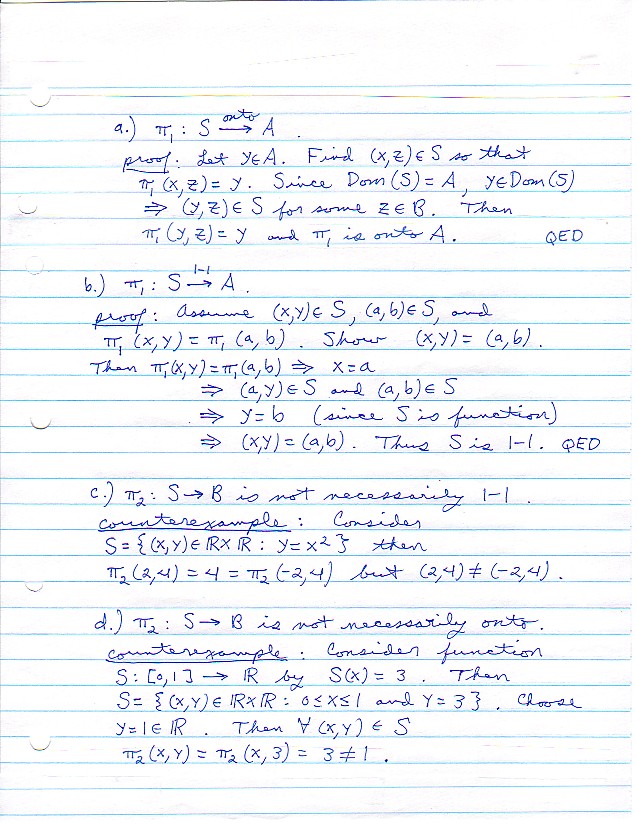 a.) π₁ : S onto→ A .
proof: Let y∈A. Find (x,z)∈S so that
π₁(x,z) = y. Since Dom(S) = A, y∈Dom(S)
⇒ (y,z)∈S for some z∈B. Then
π₁(y,z) = y and π₁ is onto A. QED
b.) π₁ : S 1-1→ A .
proof: Assume (x,y)∈S, (a,b)∈S, and
π₁(x,y) = π₁(a,b). Show (x,y) = (a,b).
Then π₁(x,y) = π₁(a,b) ⇒ x=a
⇒ (a,y)∈S and (a,b)∈S
⇒ y=b (since S is function)
⇒ (x,y) = (a,b). Thus S is 1-1. QED
c.) π₂ : S → B is not necessarily 1-1 .
counterexample : Consider
S = {(x,y)∈ℝ×ℝ : y=x²} then
π₂(2,4) = 4 = π₂(-2,4) but (2,4) ≠ (-2,4).
d.) π₂ : S → B is not necessarily onto.
counterexample : Consider function
S : [0,1] → ℝ by S(x) = 3 . Then
S = {(x,y)∈ℝ×ℝ : 0≤x≤1 and y=3}. Choose
y=1∈ℝ . Then ∀(x,y)∈S
π₂(x,y) = π₂(x,3) = 3 ≠ 1 .